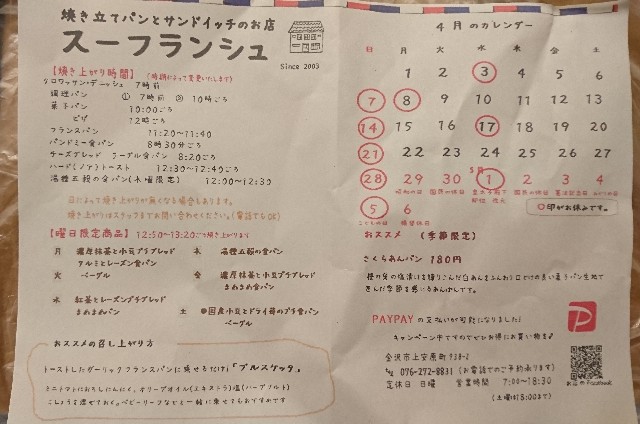 焼き立てパンとサンドイッチのお店
スーフランシュ
Since 2003
【焼き上がり時間】(時期によって変更いたします)
クロワッサン・デニッシュ 7時前
調理パン ① 7時前 ② 10時ごろ
菓子パン 10:00ごろ
ピザ 12時ごろ
フランスパン 11:20〜11:40
パンドミー食パン 8時30分ごろ
チーズブレッド 8:20ごろ
ハード(ノア)トースト 12:30〜12:40ごろ
湯種五穀の食パン(木曜限定) 12:00〜12:30
日によって焼き上がりが無くなる場合もあります。
焼き上がりはスタッフまでお問い合わせください。(電話でもOK)
【曜日限定商品】12:50〜13:20ごろ焼き上がります
月 濃厚抹茶と小豆プチブレッド
アルミとレーズン食パン
火 ベーグル
水 紅茶とレーズンプチブレッド
まめまめパン
木 湯種五穀の食パン
金 濃厚抹茶と小豆プチブレッド
まめまめ食パン
土 国産小豆とドライ苺のプチ食パン
ベーグル
おススメの召し上がり方
トーストしたガーリックフランスパンに乗せるだけ!「ブルスケッタ」
ミニトマトにおろしにんにく、オリーブオイル(エキストラ)塩(ハーブソルト)
こしょうを混ぜておく。ベビーリーフなどと一緒に乗せてもおすすめです
4月のカレンダー
日 月 火 水 木 金 土
1 2 3 4 5 6
7 8 9 10 11 12 13
14 15 16 17 18 19 20
21 22 23 24 25 26 27
28 29 30 5月 1 2 3 4
昭和の日 国民の休日 国民の休日 憲法記念日 みどりの日
5 6
こどもの日 振替休日
○印がお休みです。
おススメ (季節限定)
さくらあんパン 180円
PAYPAYの支払いが可能になりました!
キャンペーン中ですのでぜひお得にお買い物を♪
金沢市上安原町938-2
076-272-8831 (お電話でのご予約承ります)
定休日 日曜 営業時間 7:00〜18:30
(土曜は15:00まで)
お店のFacebook